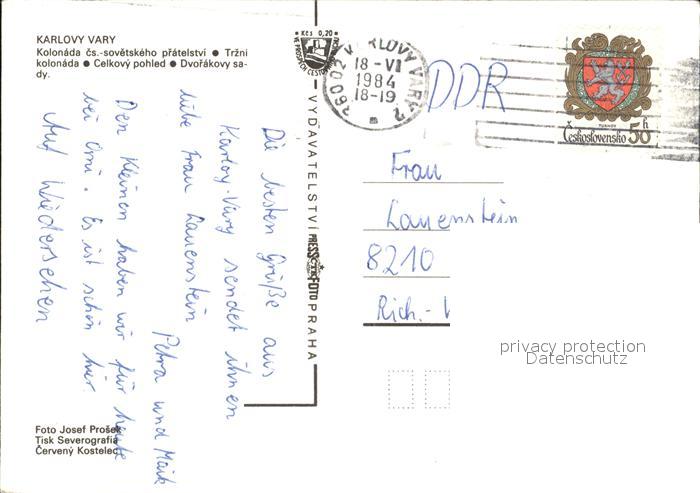 KARLOVY VARY
Kolonáda čs.-sovětského přátelství ● Tržní
kolonáda ● Celkový pohled ● Dvořákovy sa-
dy.
Die besten Grüße aus
Karlovy-Vary sendet ihnen
liebe Frau Lauenstein
Petra und Maik
Den Kleinen haben wir für heute
bei Omi. Es ist schön hier.
Auf Wiedersehen
Foto Josef Prošek
Tisk Severografia
Červený Kostelec
Kčs 0,20
VYDAVATELSTVÍ PRESSFOTO PRAHA
360 02 KARLOVY VARY 2
18-VII
1984
18-19
m
DDR
TURNOV
Československo 50 h
Frau
Lauenstein
8210
Rich.-
privacy protection
Datenschutz